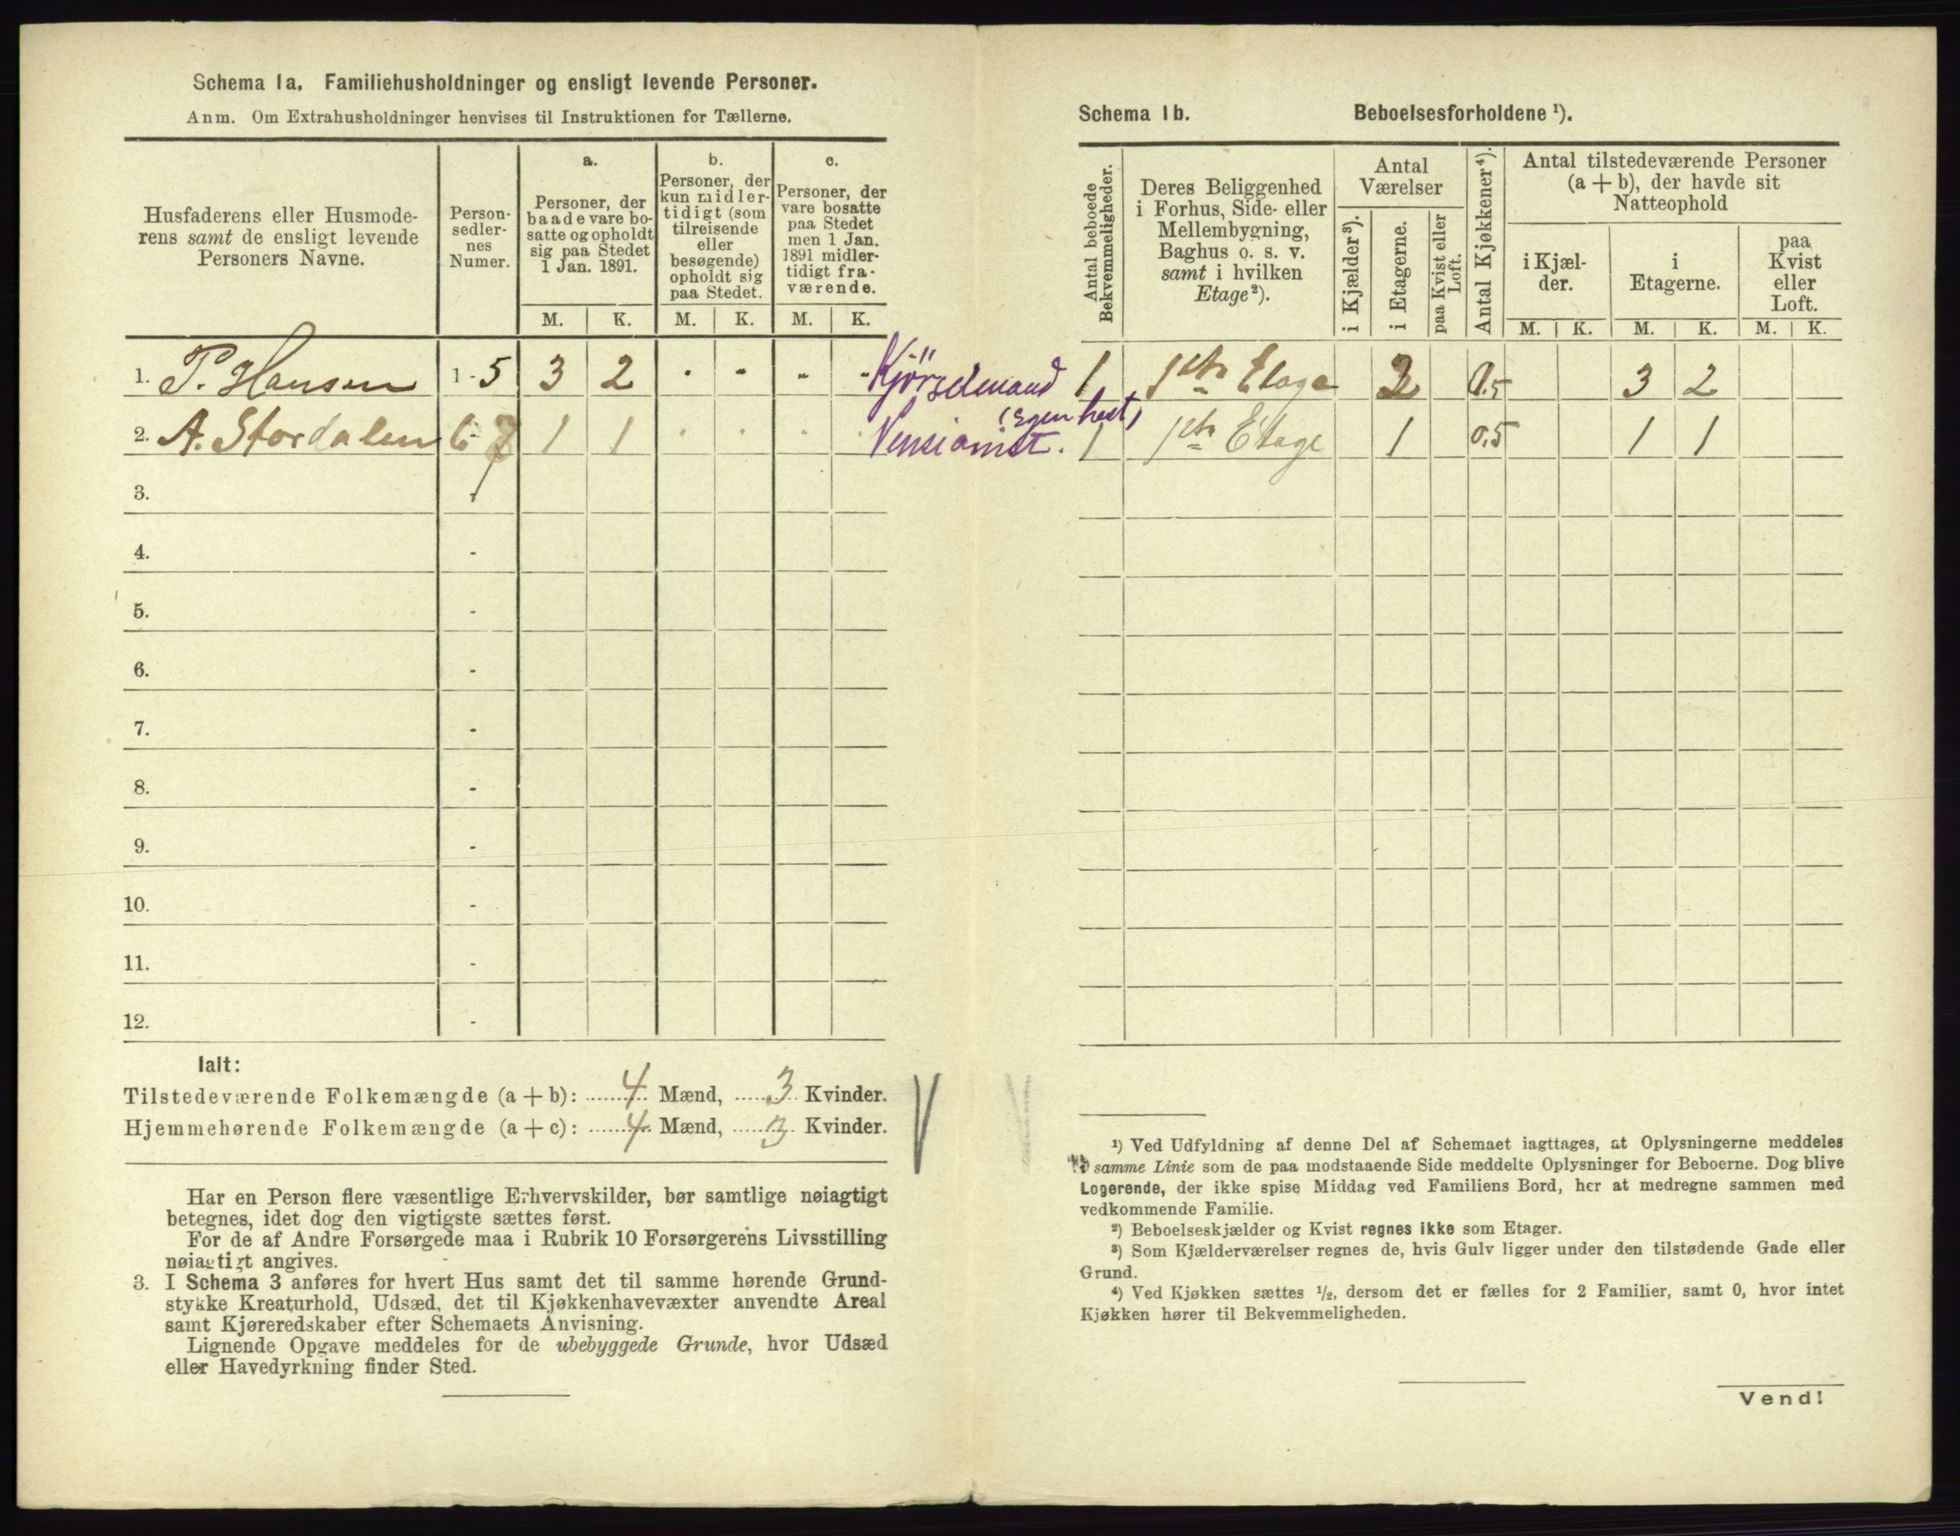 Schema 1a. Familiehusholdninger og ensligt levende Personer.
Anm. Om Extrahusholdninger henvises til Instruktionen for Tællerne.
Husfaderens eller Husmode-
rens samt de ensligt levende
Personers Navne.
Person-
sedler-
nes
Numer.
a.
Personer, der
baade vare bo-
satte og opholdt
sig paa Stedet
1 Jan. 1891.
b.
Personer, der
kun midler-
tidigt (som
tilreisende
eller
besøgende)
opholdt sig
paa Stedet.
c.
Personer, der
vare bosatte
paa Stedet
men 1 Jan.
1891 midler-
tidigt fra-
værende.
M. K. M. K. M. K.
1. P. Hansen 1-5 3 2 - - - - Kjörselmand
(Egen hest)
2. A. Stordalen 6-7 1 1 - - - - Pensionist.
3. -
4. -
5. -
6. -
7. -
8. -
9. -
10. -
11. -
12. -
Ialt:
Tilstedeværende Folkemængde (a + b): 4 Mænd, 3 Kvinder.
Hjemmehørende Folkemængde (a + c): 4 Mænd, 3 Kvinder.
Har en Person flere væsentlige Erhvervskilder, bør samtlige nøiagtigt
betegnes, idet dog den vigtigste sættes først.
For de af Andre Forsørgede maa i Rubrik 10 Forsørgerens Livsstilling
nøiagtigt angives.
3. I Schema 3 anføres for hvert Hus samt det til samme hørende Grund-
stykke Kreaturhold, Udsæd, det til Kjøkkenhavevæxter anvendte Areal
samt Kjøreredskaber efter Schemaets Anvisning.
Lignende Opgave meddeles for de ubebyggede Grunde, hvor Udsæd
eller Havedyrkning finder Sted.
Schema 1b. Beboelsesforholdene ¹).
Antal beboede
Bekvemmeligheder.
Deres Beliggenhed
i Forhus, Side- eller
Mellembygning,
Baghus o. s. v.
samt i hvilken
Etage²).
Antal
Værelser
i Kjælder³).
i Etagerne.
paa Kvist eller
Loft.
Antal Kjøkkener⁴).
Antal tilstedeværende Personer
(a + b), der havde sit
Natteophold
i Kjæl-
der.
i
Etagerne.
paa
Kvist
eller
Loft.
M. K. M. K. M. K.
1 1ste Etage 2 0.5 3 2
1 1ste Etage 1 0,5 1 1
¹) Ved Udfyldning af denne Del af Schemaet iagttages, at Oplysningerne meddeles
i samme Linie som de paa modstaaende Side meddelte Oplysninger for Beboerne. Dog blive
Logerende, der ikke spise Middag ved Familiens Bord, her at medregne sammen med
vedkommende Familie.
²) Beboelseskjælder og Kvist regnes ikke som Etager.
³) Som Kjælderværelser regnes de, hvis Gulv ligger under den tilstødende Gade eller
Grund.
⁴) Ved Kjøkken sættes ½, dersom det er fælles for 2 Familier, samt 0, hvor intet
Kjøkken hører til Bekvemmeligheden.
Vend!